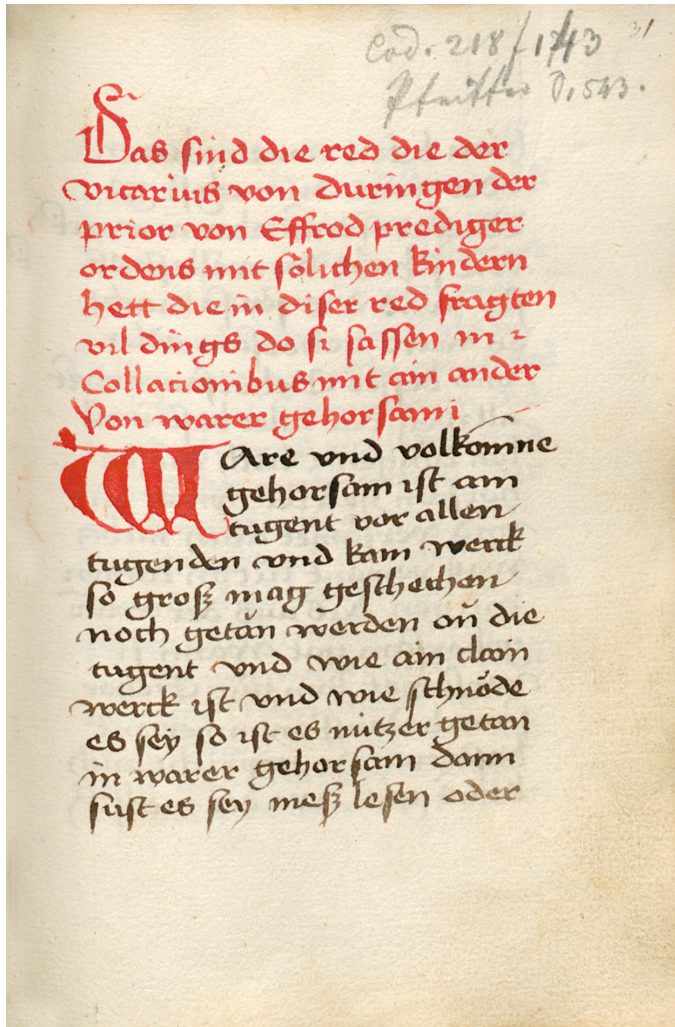 31
Cod. 218/1743
Pfeiffer S. 543.
Das sind die red die der
vicarius von duringen der
prior von Effrod prediger
ordens mit sölichen kindern
hett die in diser red fragten
vil dings do si sassen in
Collacionibus mit ain ander
Von warer gehorsami
WAre vnd volkom̄ne
gehorsam ist ain
tugent vor allen
tugenden vnd kain werck
so groß mag geschechen
noch getăn werden on̆ die
tugent vnd wie ain clain
werck ist vnd wie schnöde
es sey so ist es nutzer getan
in warer gehorsam dann
sust es sey meß lesen oder